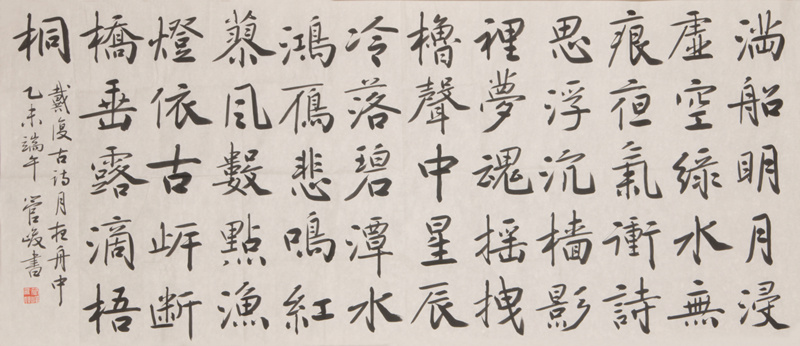 满船明月浸
虚空緑水無
痕夜氣衝詩
思浮沉檣影
裡夢魂摇拽
櫓聲中星辰
冷落碧潭水
鴻鴈悲鳴紅
蓼風數點漁
燈依古岸断
橋垂露滴梧
桐
戴復古詩月夜舟中
乙未端午 管峻書